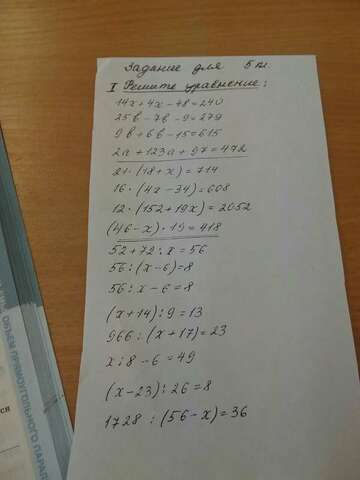 Задание для 5 кл.
I Решите уравнение:
14x+4x-48=240
25в-7в-9=279
9в+6в-15=615
2а+123а+97=472
21·(18+x)=714
16·(4x-34)=608
12·(152+19x)=2052
(46-x)·19=418
52+72:x=56
56:(x-6)=8
56:x-6=8
(x+14):9=13
966:(x+17)=23
x:8-6=49
(x-23):26=8
1728:(56-x)=36
ОБЪЕМ ПРЯМОУГОЛЬНОГО ПАРАЛ